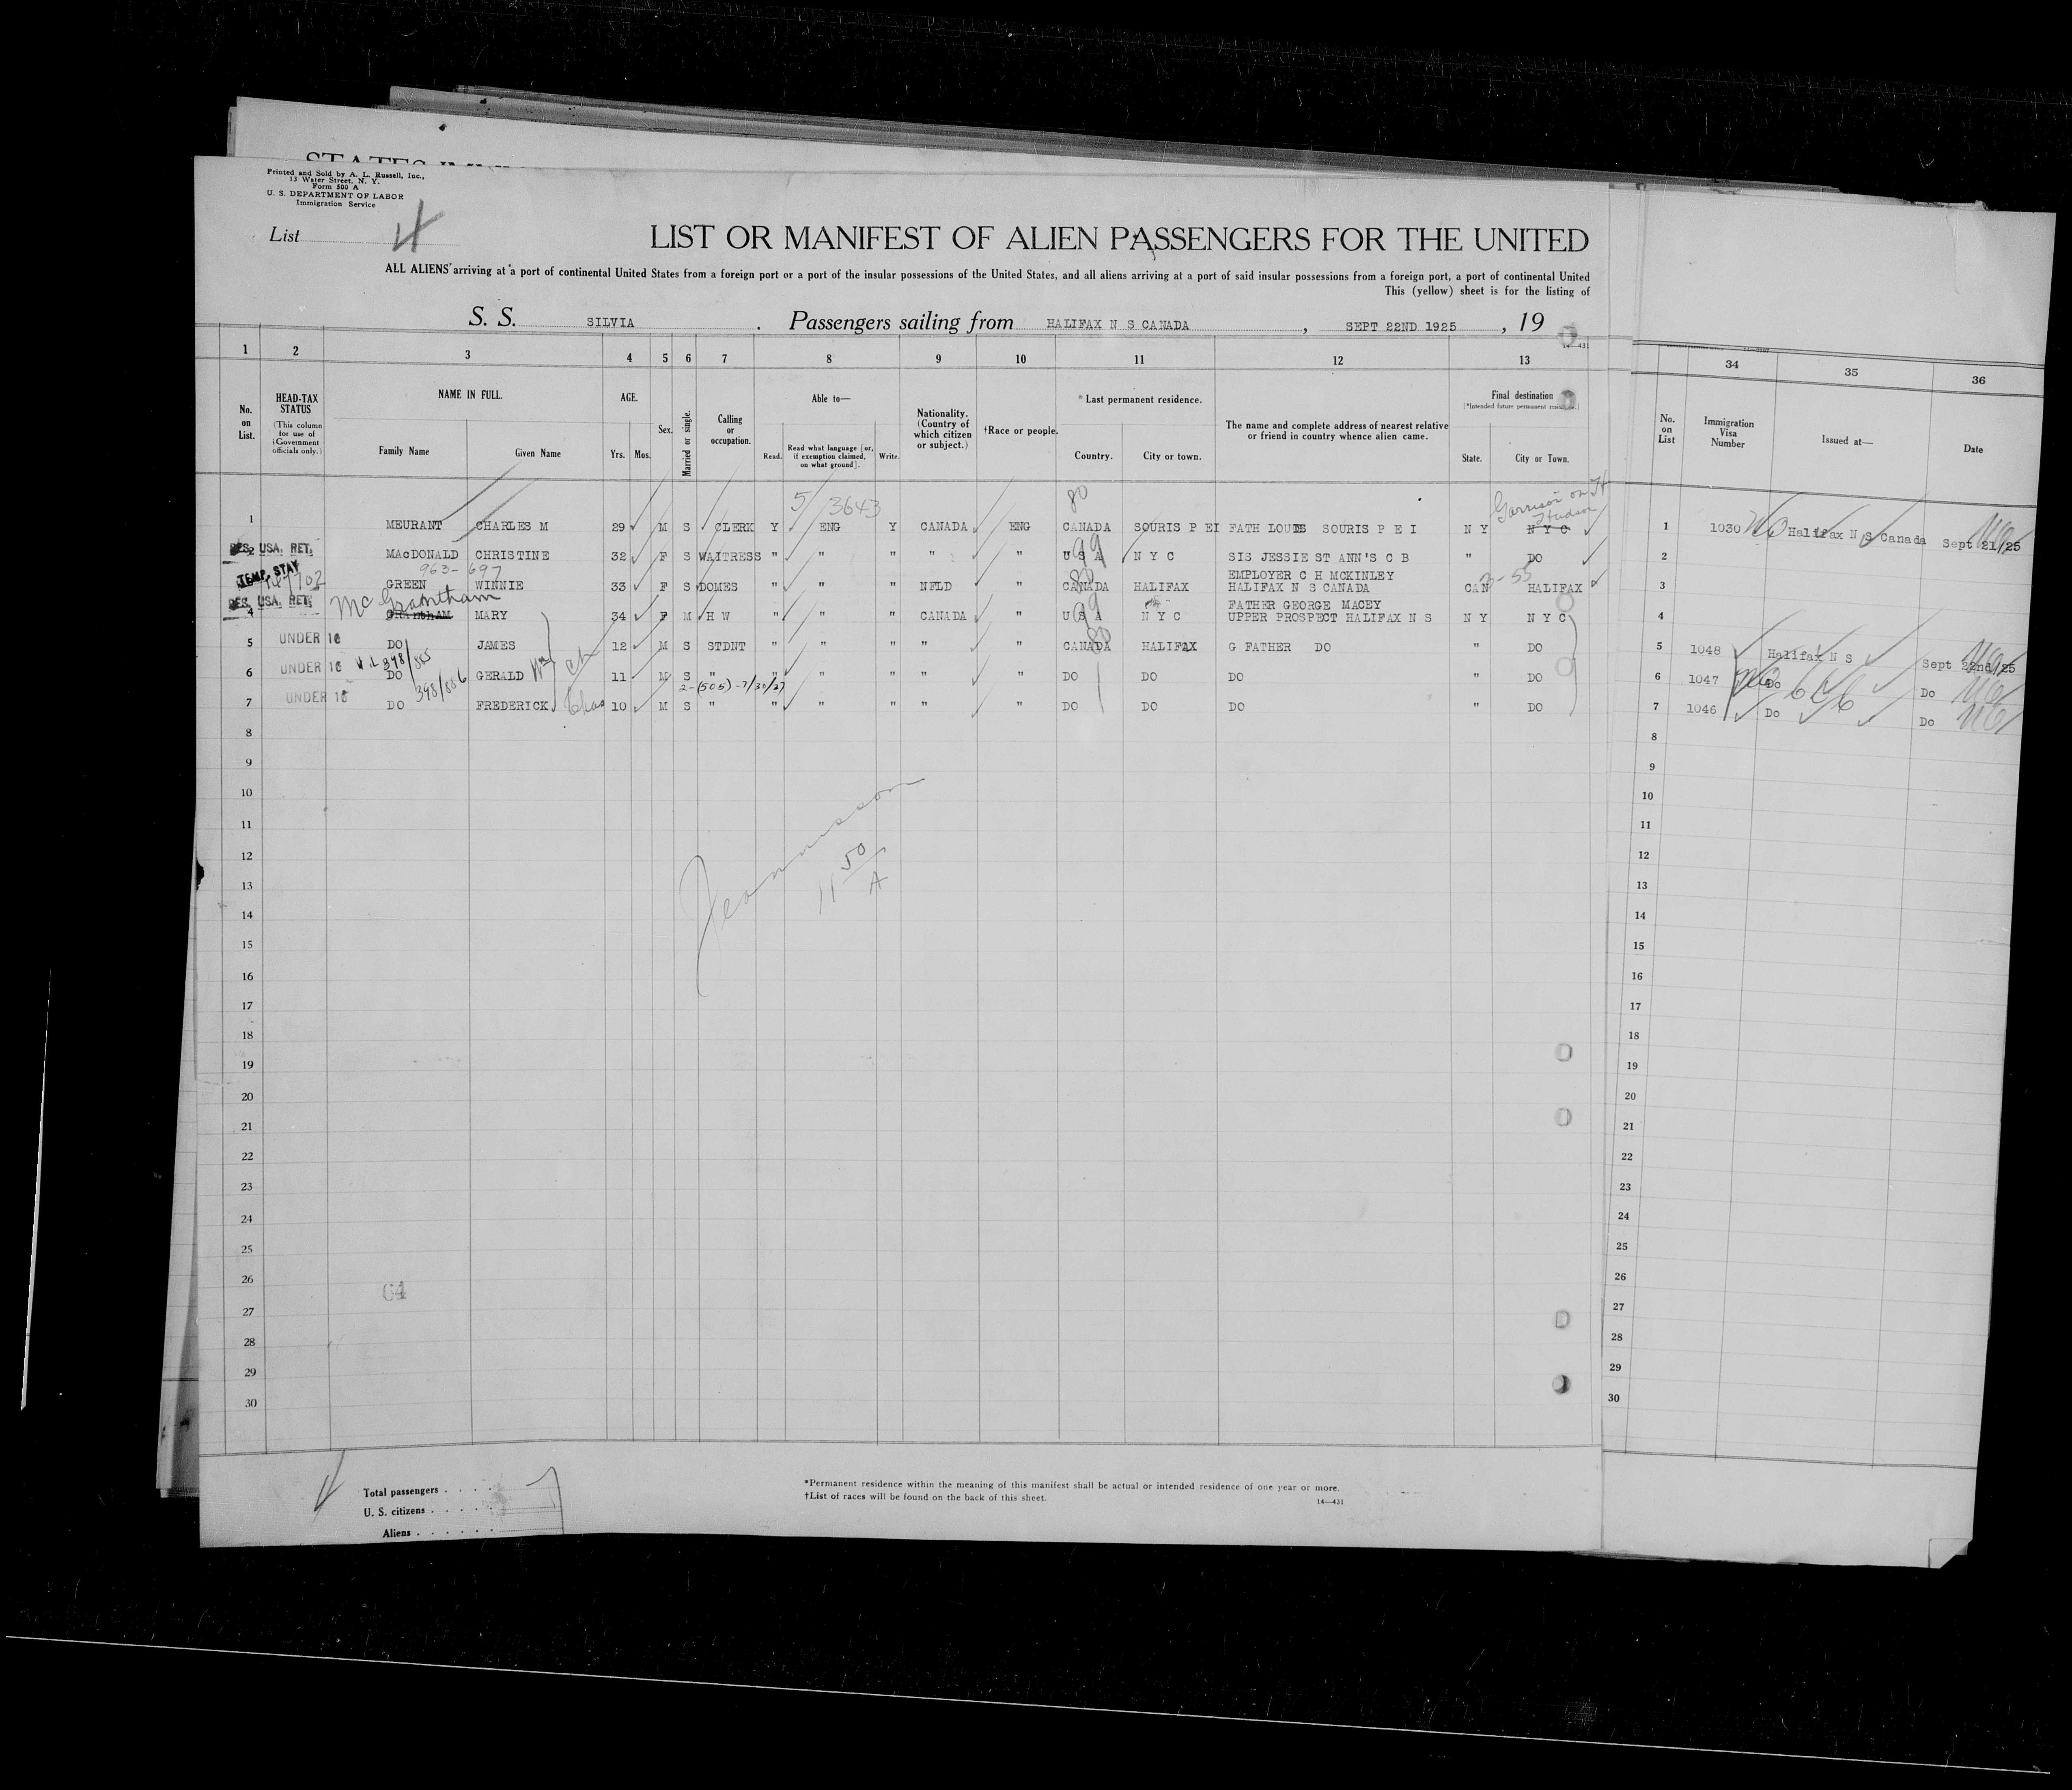 Printed and Sold by A. L. Russell, Inc.,
13 Water Street, N. Y.
Form 500 A
U. S. DEPARTMENT OF LABOR
Immigration Service
List 4
LIST OR MANIFEST OF ALIEN PASSENGERS FOR THE UNITED
ALL ALIENS arriving at a port of continental United States from a foreign port or a port of the insular possessions of the United States, and all aliens arriving at a port of said insular possessions from a foreign port, a port of continental United
This (yellow) sheet is for the listing of
S. S. SILVIA . Passengers sailing from HALIFAX N S CANADA , SEPT 22ND 1925 , 19
14—431
1 2 3 4 5 6 7 8 9 10 11 12 13 34 35 36
No. on List. HEAD-TAX STATUS (This column for use of Government officials only.) NAME IN FULL. Family Name Given Name AGE. Yrs. Mos. Sex. Married or single. Calling or occupation. Able to— Read. Read what language [or, if exemption claimed, on what ground]. Write. Nationality. (Country of which citizen or subject.) †Race or people. *Last permanent residence. Country. City or town. The name and complete address of nearest relative or friend in country whence alien came. Final destination State. City or Town. No. on List Immigration Visa Number Issued at— Date
5/3643 80 Garrison on H
Hudson
1 MEURANT CHARLES M 29 M S CLERK Y ENG Y CANADA ENG CANADA SOURIS P EI FATH LOUIS SOURIS P E I N Y N Y C 1 1030 Halifax N S Canada Sept 21/25
RES. USA. RET.
2 MACDONALD CHRISTINE 32 F S WAITRESS " " " " " U S A 99 N Y C SIS JESSIE ST ANN'S C B " DO 2
963-697
TEMP. STAY
EMPLOYER C H MCKINLEY
GREEN WINNIE 33 F S DOMES " " " NFLD " CANADA 80 HALIFAX HALIFAX N S CANADA CAN HALIFAX 3
RES. USA. RET.
McGrantham
FATHER GEORGE MACEY
4 GRANTHAM MARY 34 F M H W " " " CANADA " U S A 99 N Y C UPPER PROSPECT HALIFAX N S N Y N Y C 4
5 UNDER 16 DO JAMES 12 M S STDNT " " " " " CANADA 80 HALIFAX G FATHER DO " DO 5 1048 Halifax N S Sept 22nd/25
V.L 398/885
6 UNDER 16 DO GERALD Wm 11 M S " " " " " " DO DO DO " DO 6 1047 Do Do
398/886
2-(505)-7/30/27
7 UNDER 16 DO FREDERICK Chas 10 M S " " " " " " DO DO DO " DO 7 1046 Do Do
8 8
9 9
10 10
11 11
12 12
13 13
11 50/A
14 14
15 15
16 16
17 17
18 18
19 19
20 20
21 21
22 22
23 23
24 24
25 25
26 64 26
27 27
28 28
29 29
30 30
Total passengers . . . . 7
U. S. citizens . . . . .
Aliens . . . . . .
*Permanent residence within the meaning of this manifest shall be actual or intended residence of one year or more.
†List of races will be found on the back of this sheet.
14—431